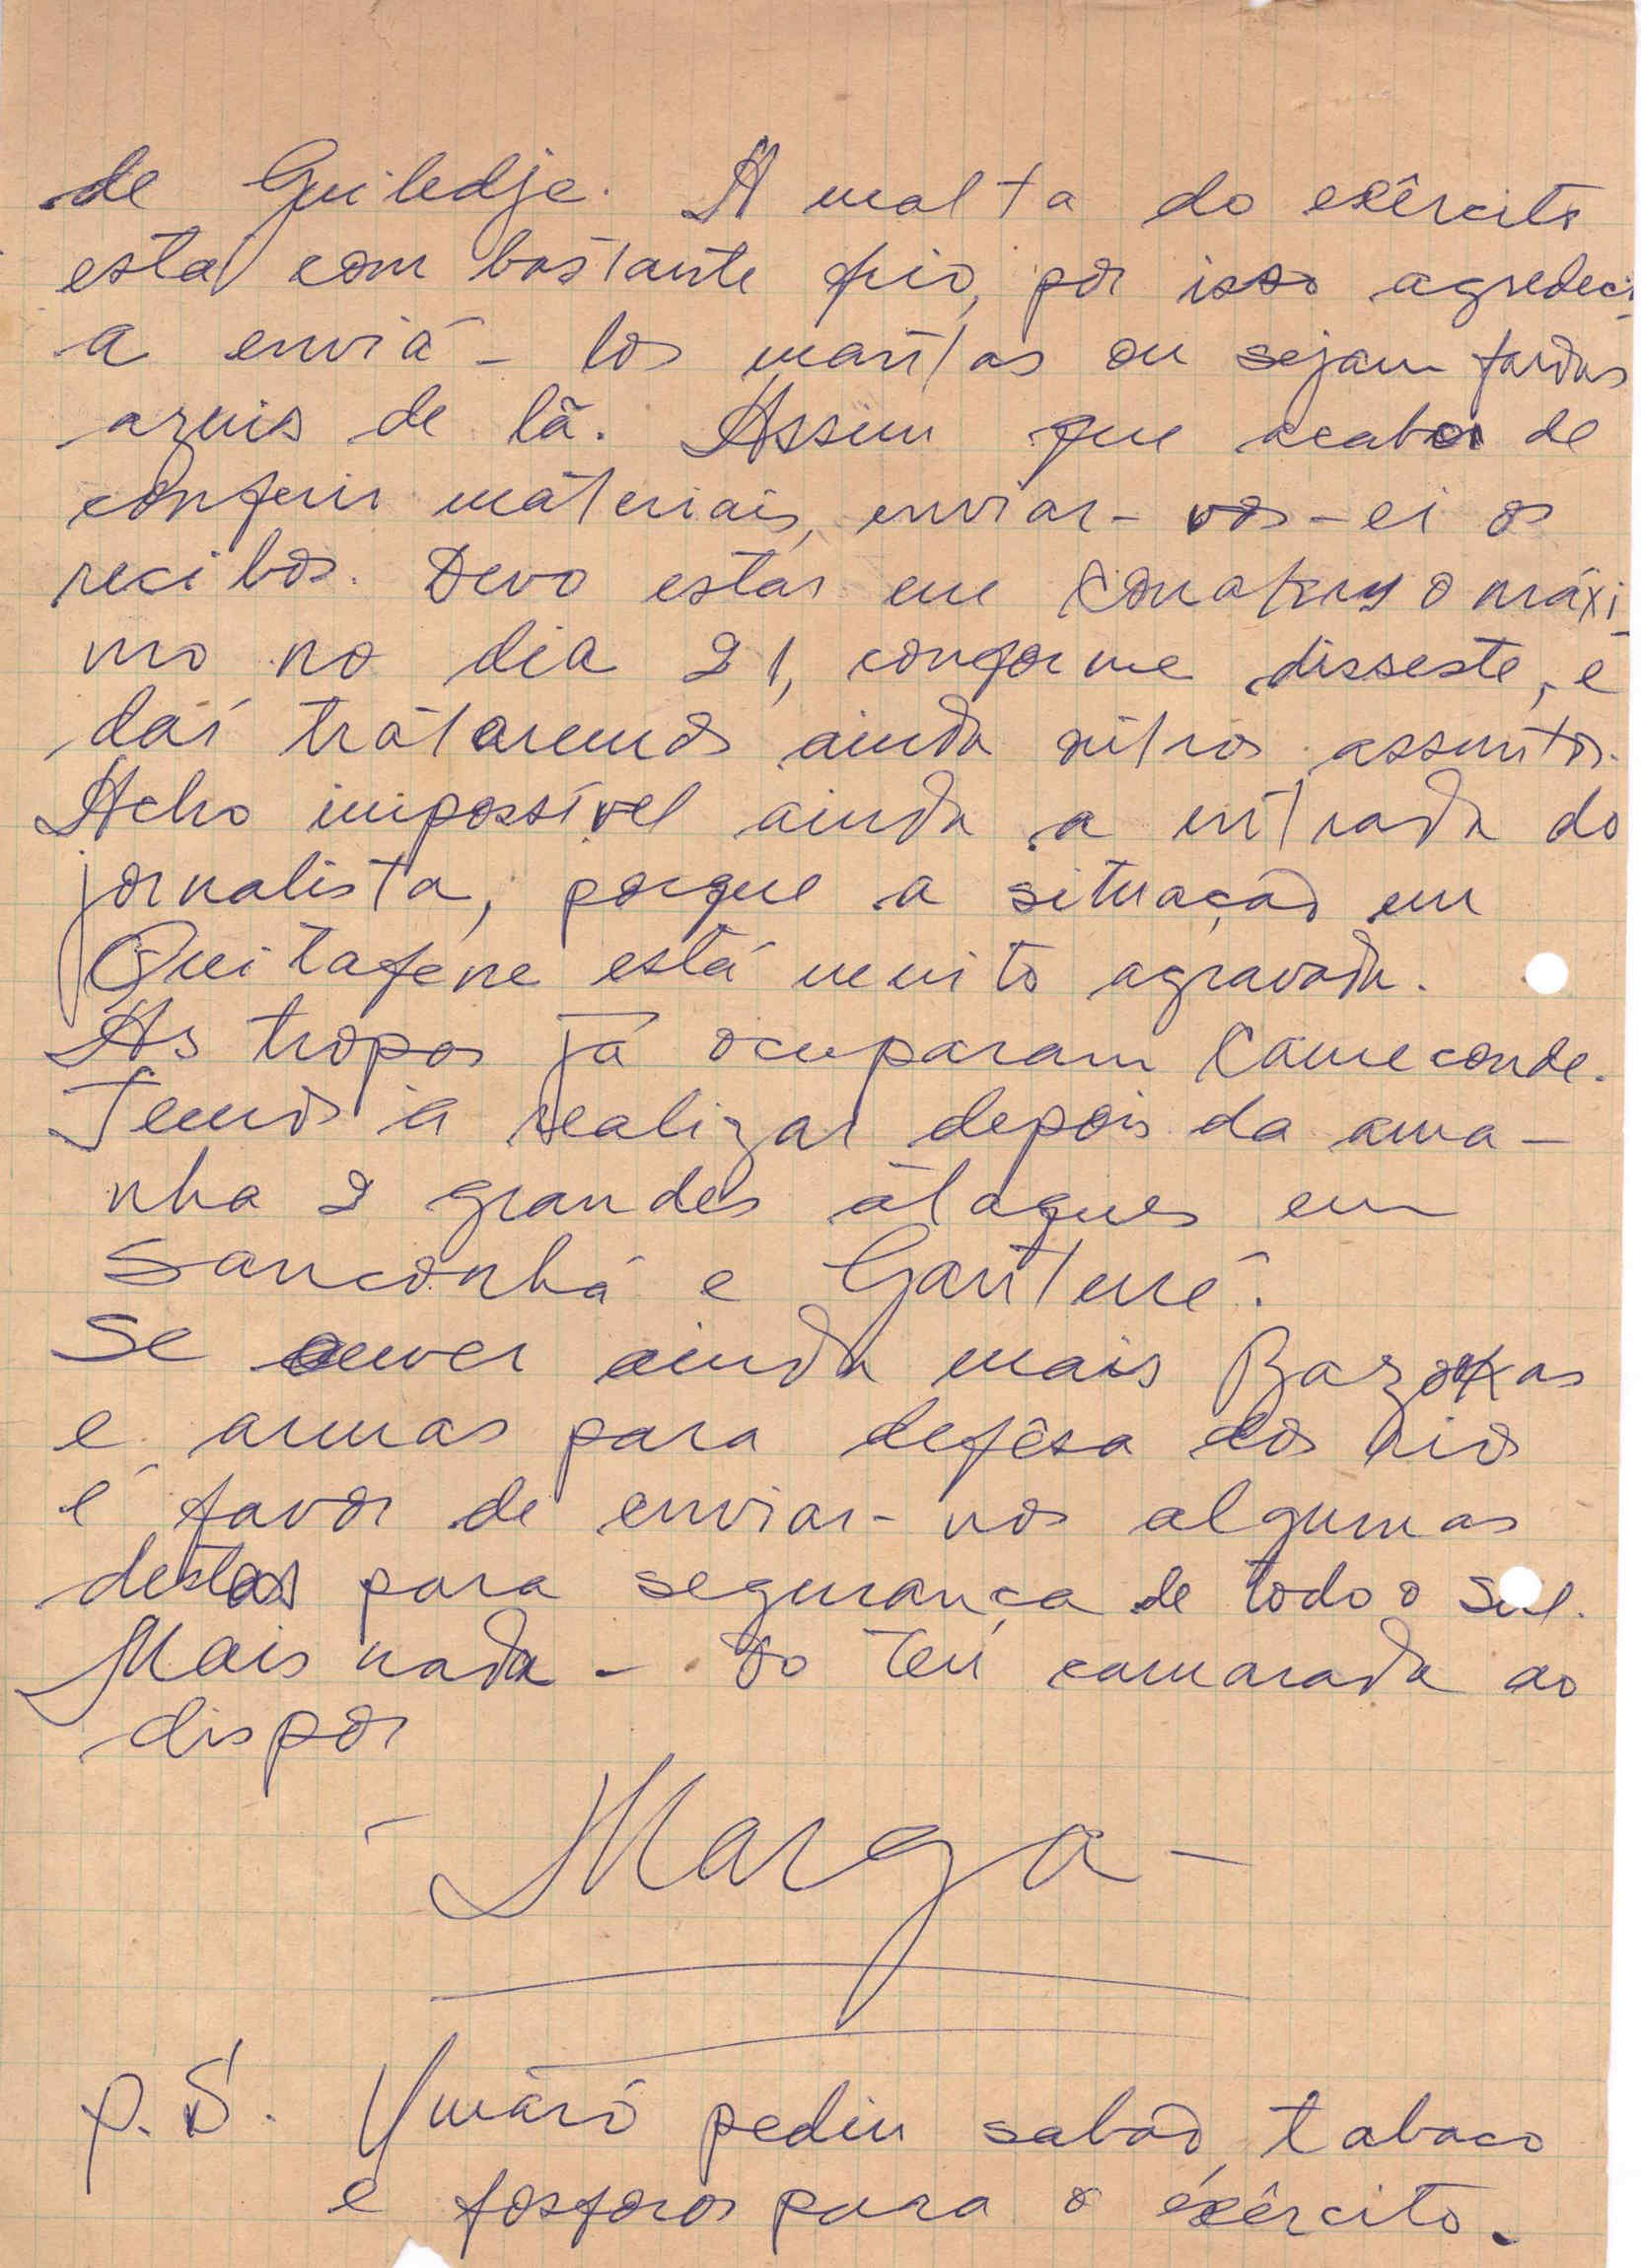 de Guiledje. A malta do exército
está com bastante frio, por isso agredeci
a enviá-los mantas ou sejam fardas
azuis de lã. Assim que acabar de
conferir materiais, enviar-vos-ei os
recibos. Devo estar em Conakry o máxi
mo no dia 21, conforme disseste, e
daí trataremos ainda outros assuntos.
Acho impossível ainda a entrada do
jornalista, porque a situação em
Quitafene está muito agravada.
As tropas já ocuparam Cameconde.
Temos a realizar depois da ama-
nha 2 grandes ataques em
Sanconhá e Gantemé.
Se ouver ainda mais Bazokas
e armas para defêsa dos rios
é favor de enviar-nos algumas
destas para segurança de todo o Sul.
Mais nada - Do teu camarada ao
dispor
- Marga -
P.S. Umaro pediu sabão, tabaco
e fosforos para o exército.